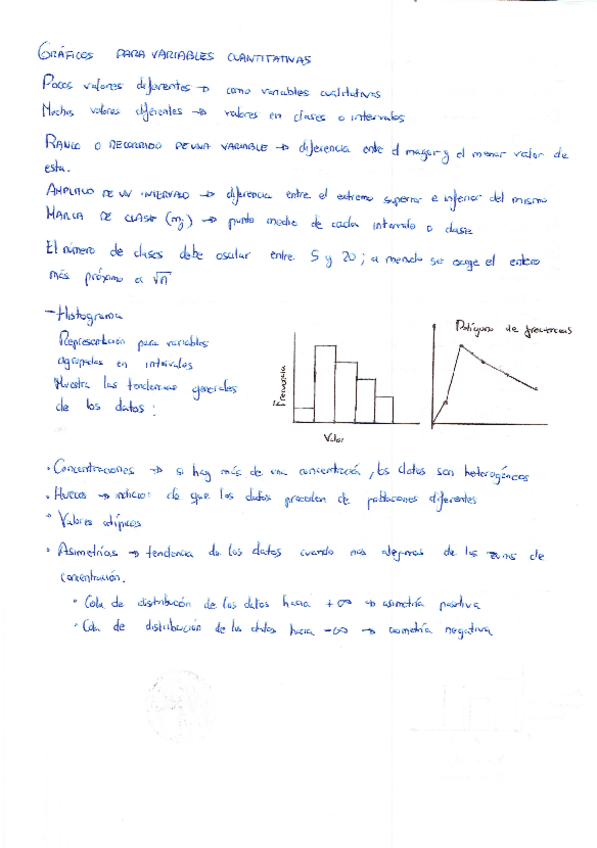 GRÁFICOS PARA VARIABLES CUANTITATIVAS
Pocos valores diferentes → como variables cualitativas
Muchos valores diferentes → valores en clases o intervalos
RANGO O RECORRIDO DE UNA VARIABLE → diferencia entre el mayor y el menor valor de
esta.
AMPLITUD DE UN INTERVALO → diferencia entre el extremo superior e inferior del mismo
MARCA DE CLASE (mj) → punto medio de cada intervalo o clase
El número de clases debe oscilar entre 5 y 20; a menudo se escoge el entero
más próximo a √n
- Histograma
Representación para variables
agrupadas en intervalos
Muestra las tendencias generales
de los datos:
Frecuencia
Valor
Polígono de frecuencias
· Concentraciones → si hay más de una concentración, los datos son heterogéneos
· Huecos → indicios de que los datos proceden de poblaciones diferentes
· Valores atípicos
· Asimetrías → tendencia de los datos cuando nos alejamos de las zonas de
concentración.
· Cola de distribución de los datos hacia +∞ → asimetría positiva
· Cola de distribución de los datos hacia -∞ → asimetría negativa